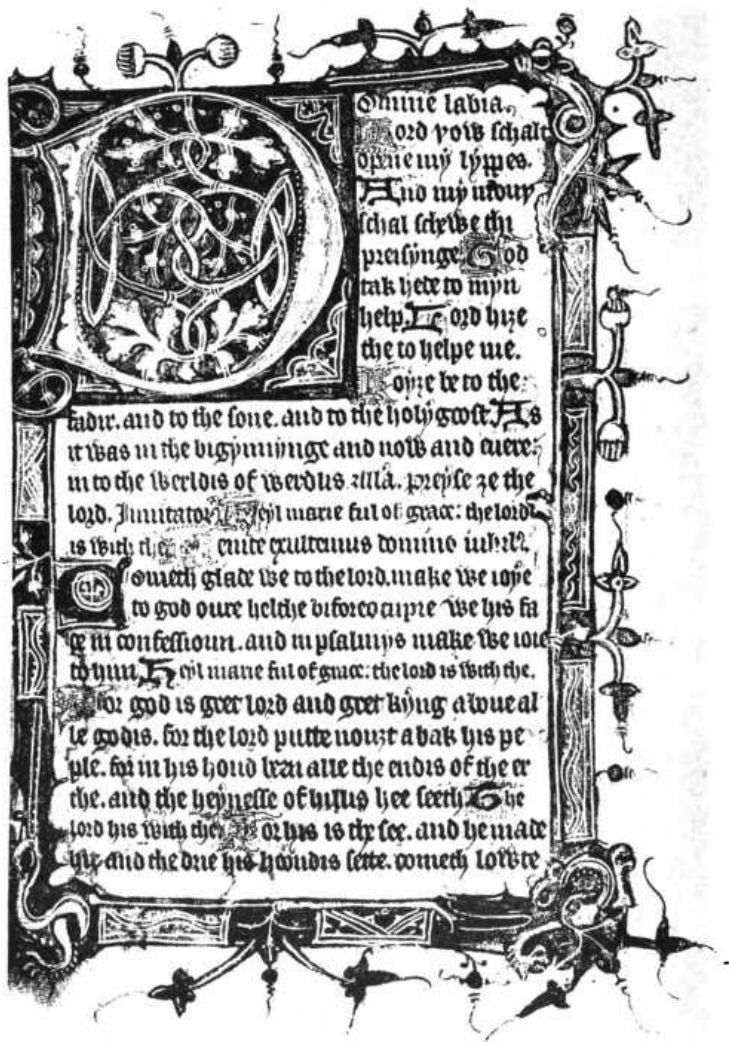 Domine labia.
Lord yow schalt
opyne my lyppes.
And my mouy
schal schewe thi
preisynge. God
tak hede to myn
help. Lord hize
the to helpe me.
Ioyze be to the
fadir. and to the sone. and to the holy goost. As
it was in the bigynnynge and now and euere:
in to the werldis of werdlis alla. preyse ze the
lord. Inuitator Heyl marie ful of grace: the lord
is with the. Uenite exultemus domino iubil.
Cometh glade we to the lord. make we ioye
to god oure helthe bifore ocupie we his fa
ce in confessioun. and in psalmys make we ioie
to him. Heyl marie ful of grace: the lord is with the.
For god is gret lord and gret kyng aboue al
le godis. for the lord putte nouzt abak his pe
ple. for in his hond been alle the endis of the er
the. and the heynesse of hillus hee seeth. The
lord his with the. For his is the see. and he made
hit and the drie his hoondis sette. cometh lowte